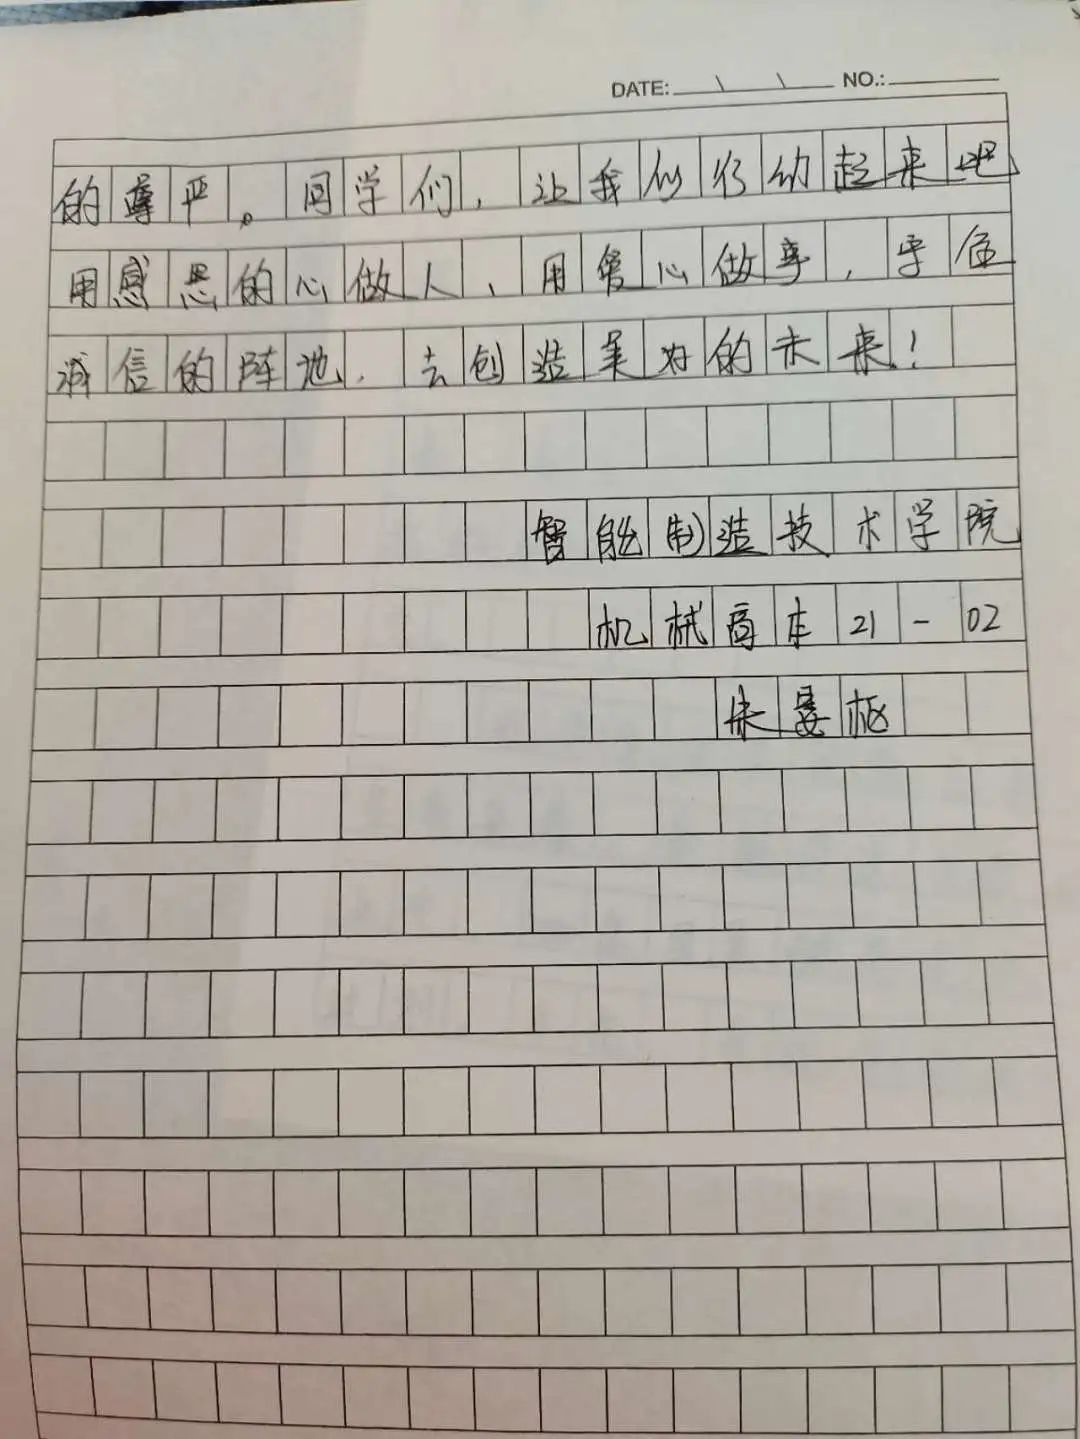 DATE: \ \ NO.:
的尊严。同学们，让我们行动起来吧
用感恩的心做人、用爱心做事，守住
诚信的阵地，去创造美好的未来！
智能制造技术学院
机械高本21-02
朱晏枢